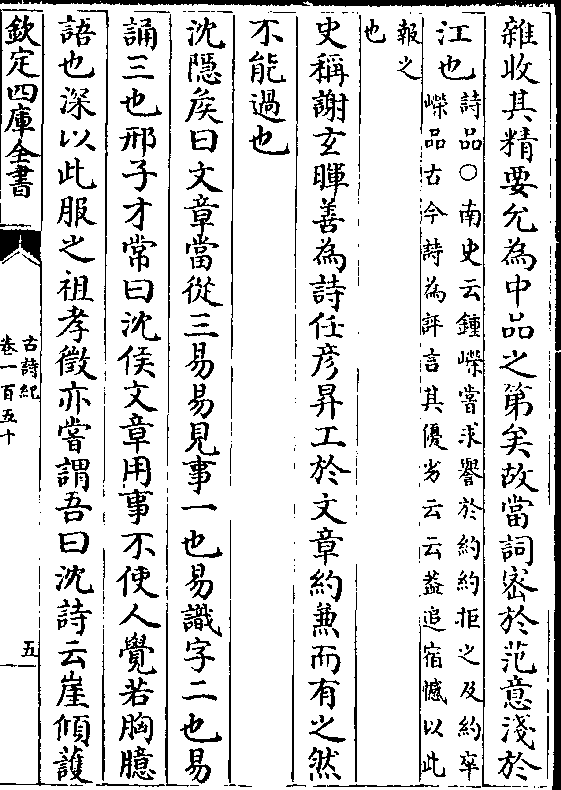 雜收其精要允為中品之第矣故當詞密於范意淺於
江也
詩品○南史云鍾嶸嘗求譽於約約拒之及約卒
嶸品古今詩為評言其優劣云云葢追宿憾以此
報之
也
史稱謝玄暉善為詩任彦昇工於文章約兼而有之然
不能過也
沈隠矦曰文章當從三易易見事一也易識字二也易
誦三也邢子才常曰沈侯文章用事不使人覺若胸臆
語也深以此服之祖孝徵亦嘗謂吾曰沈詩云崖傾護
欽定四庫全書
古詩紀
卷一百五十
五